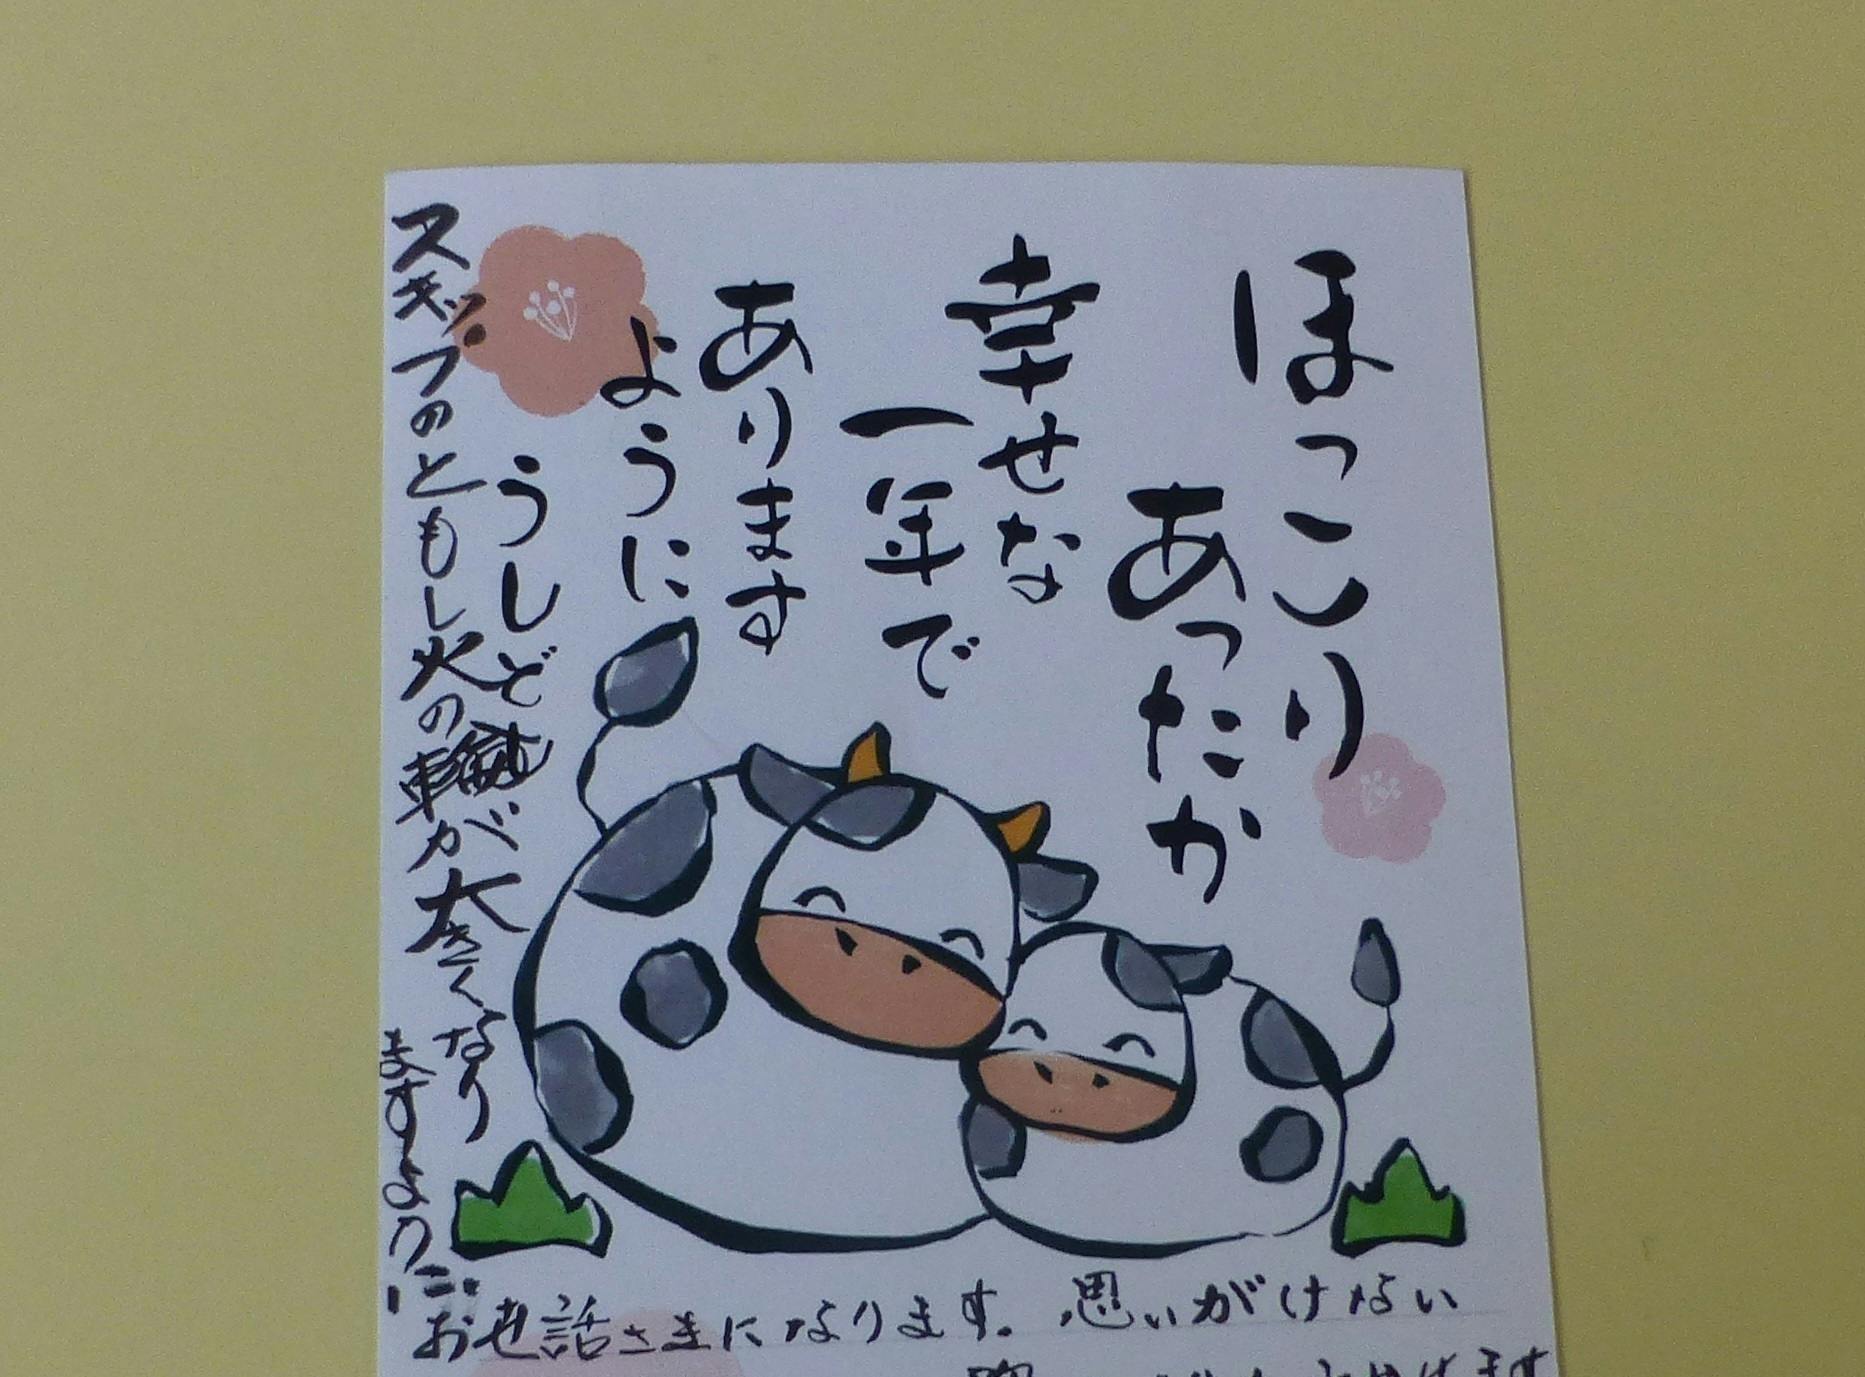 ほっこり
あったか
幸せな
一年で
あります
ように
うしど
スキップのともし火の輪が大きくなり
ますように
お世話さまになります。思いがけない